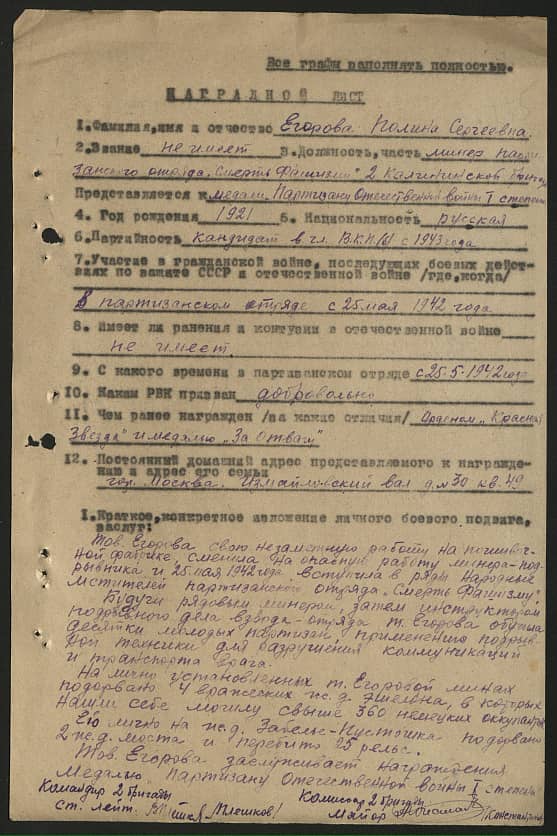 Все графы заполнять полностью.
НАГРАДНОЙ ЛИСТ
1. Фамилия, имя и отчество Егорова Полина Сергеевна.
2. Звание не имеет 3. Должность, часть минер парти-
занского отряда „Смерть Фашизму" 2 Калининской бригады
Представляется к медали „Партизану Отечественной войны" I степени
4. Год рождения 1921 5. Национальность русская
6. Партийность кандидат в чл. В.К.П./б/ с 1943 года
7. Участие в гражданской войне, последующих боевых дейст-
виях по защите СССР и отечественной войне /где, когда/
В партизанском отряде с 25 мая 1942 года
8. Имеет ли ранения и контузии в отечественной войне
не имеет.
9. С какого времени в партизанском отряде с 25-5-1942 года
10. Каким РВК призван добровольно
11. Чем ранее награжден /за какие отличия/ Орденом „Красная
Звезда" и медалью „За Отвагу"
12. Постоянный домашний адрес представляемого к награжде-
нию и адрес его семьи
гор. Москва. Измайловский вал д.№30 кв.49
1. Краткое, конкретное изложение личного боевого подвига,
заслуг:
Тов. Егорова свою незаметную работу на пошивоч-
ной фабрике, сменила на опасную работу минера-под-
рывника и 25 мая 1942 года вступила в ряды народных
мстителей партизанского отряда „Смерть Фашизму".
Будучи рядовым минером, затем инструктором
подрывного дела взвода-отряда т. Егорова обучила
десятки молодых партизан применению подрыв-
ной техники для разрушения коммуникаций
и транспорта врага.
На лично установленных т. Егоровой минах
подорвано 4 вражеских ж.д. эшелона, в которых
нашли себе могилу свыше 360 немецких оккупантов
Ею лично на ж.д. Забелье-Пустошка подорвано
2 ж.д. моста и перебито 25 рельс.
Тов. Егорова заслуживает награждения
Медалью „Партизану Отечественной войны" I степени
Командир 2 бригады Комиссар 2 бригады
ст. лейт. /Плешков/ Майор